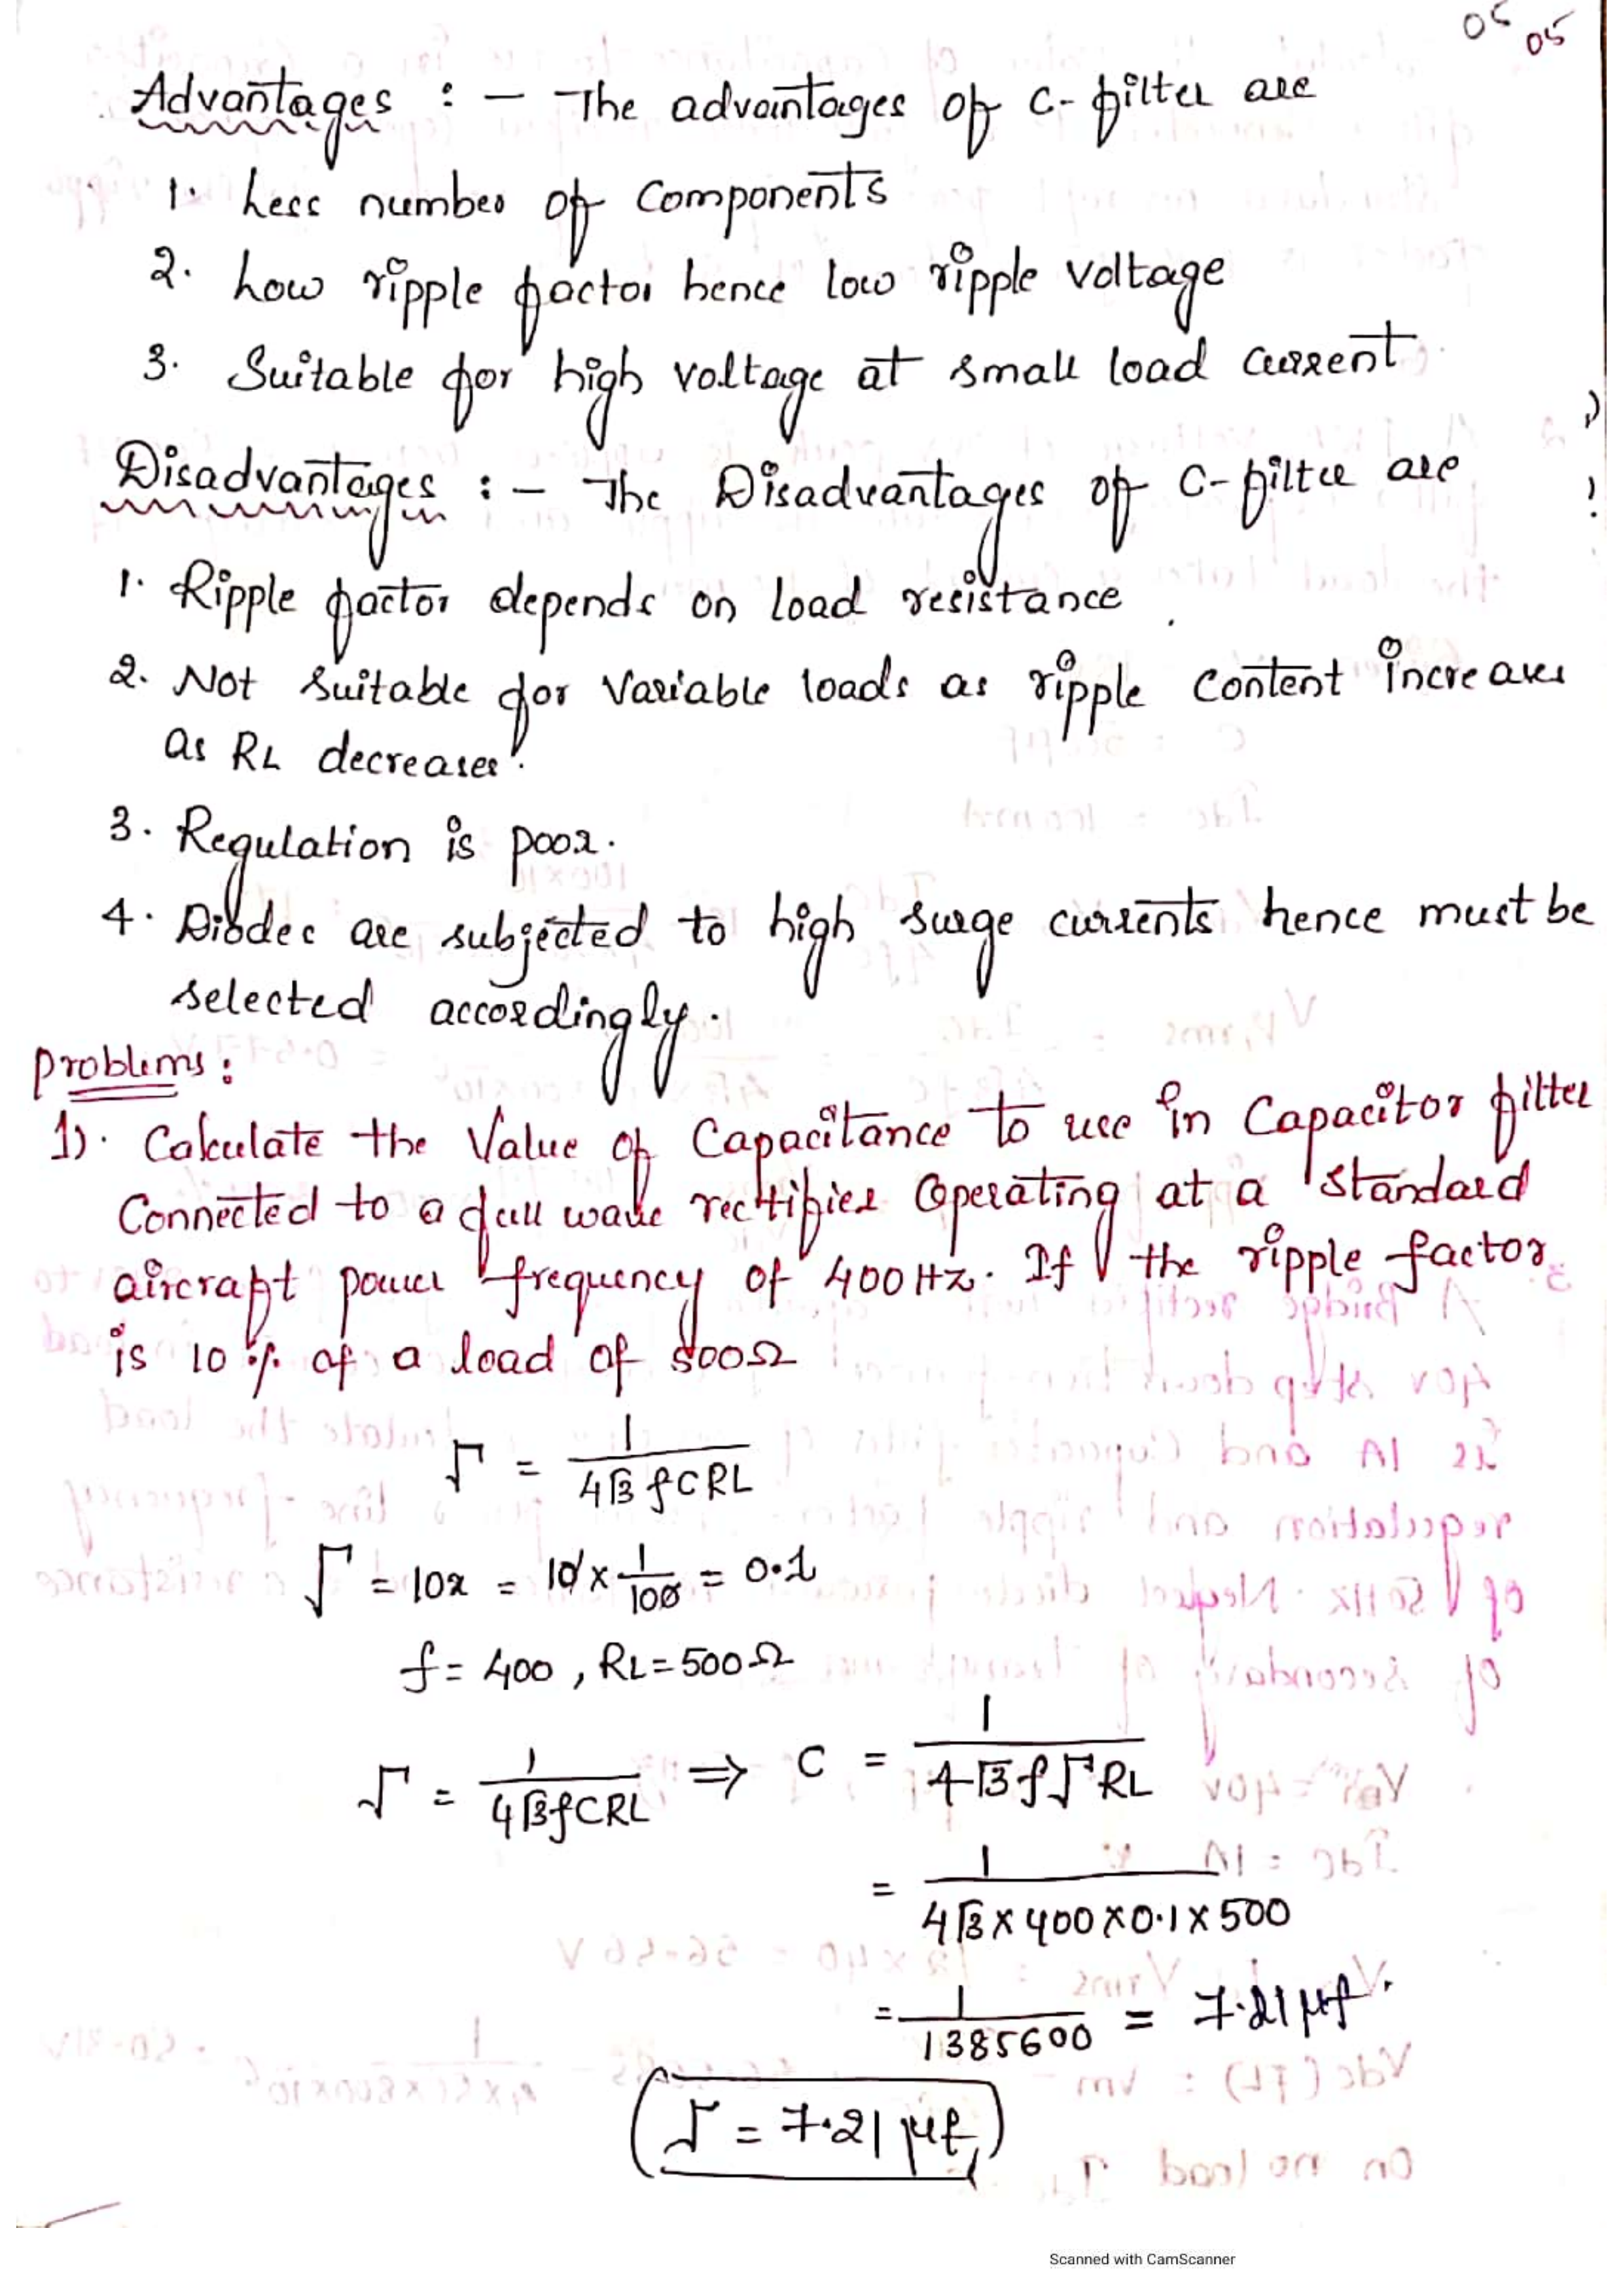 05 05
Advantages : - The advantages of C-filter are
1. Less number of Components
2. Low ripple factor hence low ripple voltage
3. Suitable for high voltage at small load current
Disadvantages : - The Disadvantages of C-filter are
1. Ripple factor depends on load resistance
2. Not suitable for Variable loads as ripple content increases
as RL decreases.
3. Regulation is poor.
4. Diodes are subjected to high surge currents hence must be
selected accordingly.
Problems :
1). Calculate the Value of Capacitance to use in Capacitor filter
Connected to a full wave rectifier Operating at a standard
aircraft power frequency of 400 Hz. If the ripple factor
is 10 % of a load of 500Ω
Γ = 1/(4√3 fCRL)
Γ = 10% = 10 × 1/100 = 0.1
f = 400 , RL = 500Ω
Γ = 1/(4√3fCRL) ⇒ C = 1/(4√3 f Γ RL)
= 1/(4√3 × 400 × 0.1 × 500)
= 1/1385600 = 7.21 μf.
Γ = 7.21 μf
Scanned with CamScanner